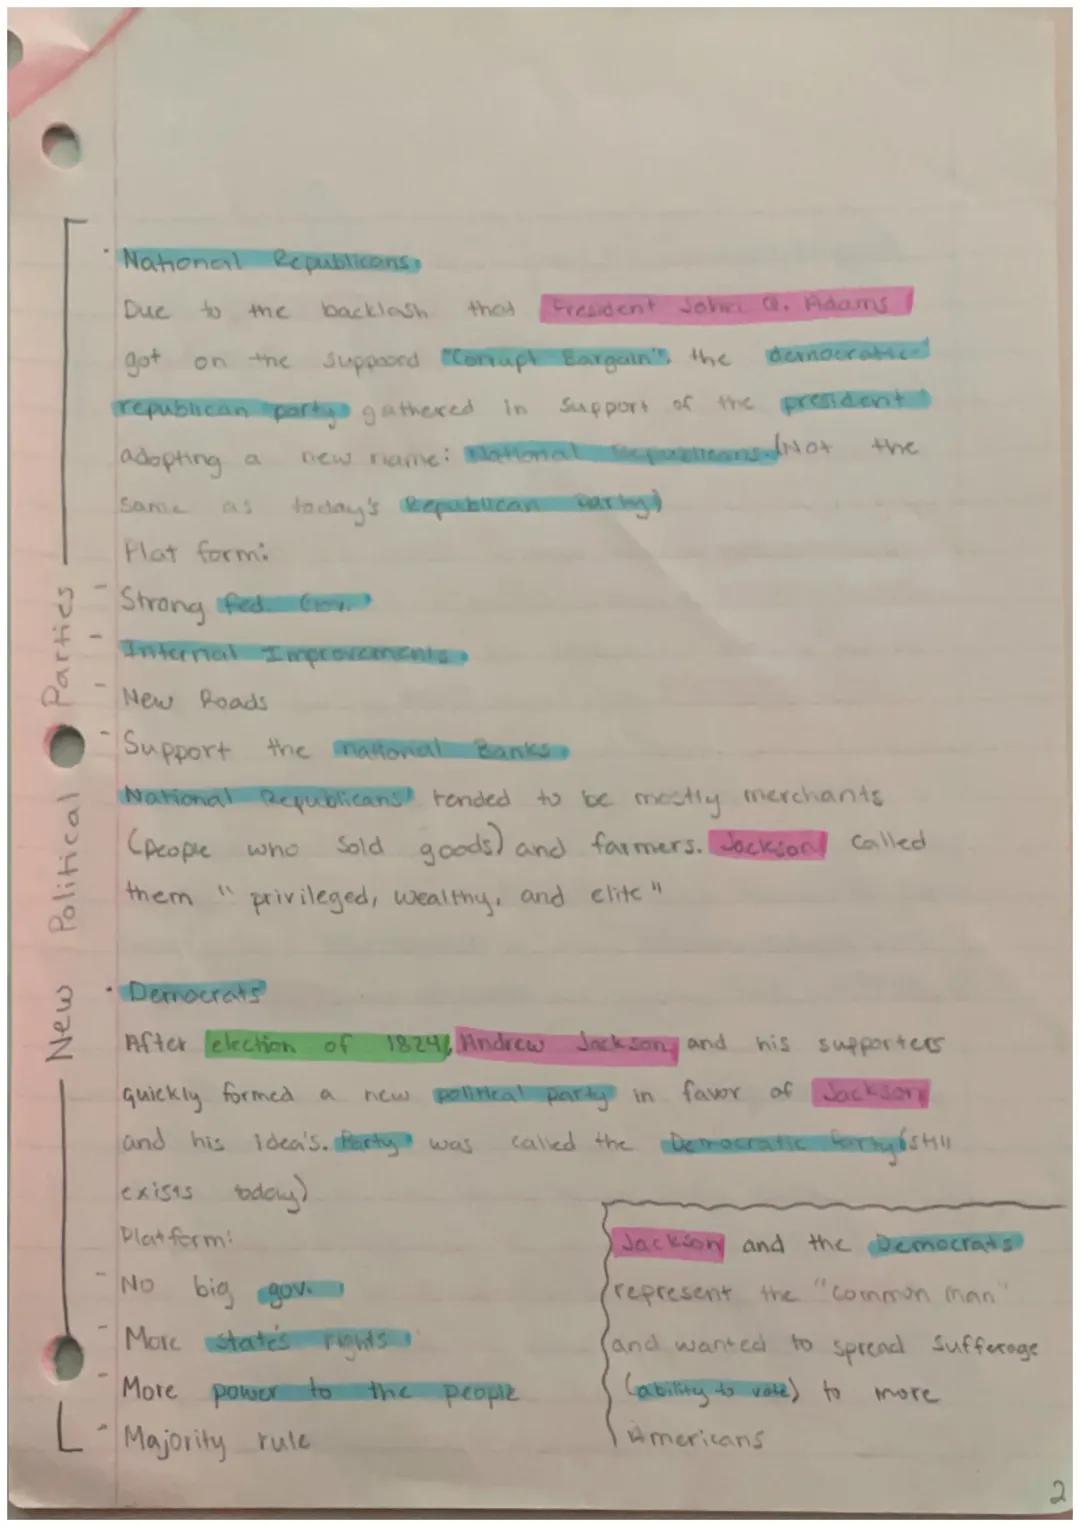 New Political Parties
National Republicans
Due to the backlash that President John Q. Adams
got on the suppoord "Corrupt Bargain", the democratic-
republican party gathered in support of the president
adopting a new name: National Republicans. (Not the
same as today's Republican Party)
Platform:
- Strong fed. Gov.
- Internal Improvements
- New Roads
- Support the national Banks
National Republicans tended to be mostly merchants
(people who sold goods) and farmers. Jackson called
them "privileged, wealthy, and elite"
Democrats
After election of 1824, Andrew Jackson and his supporters
quickly formed a new political party in favor of Jackson
and his idea's. Party was called the Democratic Party (still
exists today)
Platform:
- No big gov.
- More state's rights
- More power to the people
- Majority rule
Jackson and the Democrats
represent the "common man"
and wanted to spread Sufferage
(ability to vote) to more
Americans
2